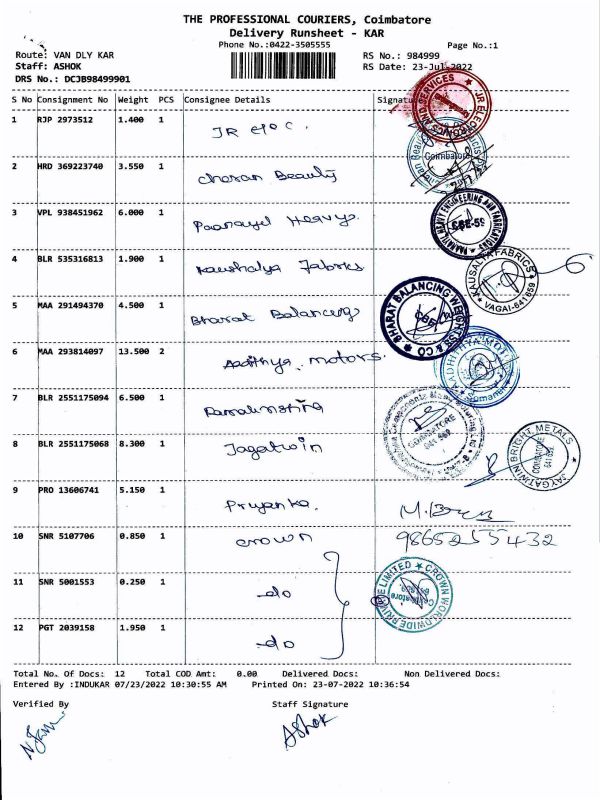 THE PROFESSIONAL COURIERS, Coimbatore
Delivery Runsheet - KAR
Phone No.:0422-3505555
Page No.:1
Route: VAN DLY KAR
RS No.: 984999
Staff: ASHOK
RS Date: 23-Jul-2022
DRS No.: DCJB98499901
S No Consignment No Weight PCS Consignee Details Signature
1 RJP 2973512 1.400 1 JR eloc.
JR ELECTRONICS AND SERVICES
2 HRD 369223740 3.550 1 Charan Beauty
Coimbatore
3 VPL 938451962 6.000 1 Paanayil Heavys.
PAANAYIL HEAVY ENGINEERING AND FABRICATORS
CBE-59
4 BLR 535316813 1.900 1 Kaushalya Fabrics
KAUSALYA FABRICS
VAGAI-641659
5 MAA 291494370 4.500 1 Bharat Balancings
BHARAT BALANCING WEIGHTSS & CO
CBE
6 MAA 293814097 13.500 2 Aadithya motors.
AADHITHYA MOTOR
Somanur
7 BLR 2551175094 6.500 1
COIMBATORE
641 659
8 BLR 2551175068 8.300 1 Jagatwin
JAYGATWIN BRIGHT METALS
COIMBATORE
641 659
9 PRO 13606741 5.150 1 Priyanka.
10 SNR 5107706 0.850 1 crown
9865255432
11 SNR 5001553 0.250 1 -do
CROWN WORLDWIDE PRIVATE LIMITED
Coimbatore
12 PGT 2039158 1.950 1 -do
Total No. Of Docs: 12 Total COD Amt: 0.00 Delivered Docs: Non Delivered Docs:
Entered By :INDUKAR 07/23/2022 10:30:55 AM Printed On: 23-07-2022 10:36:54
Verified By Staff Signature
Ashok